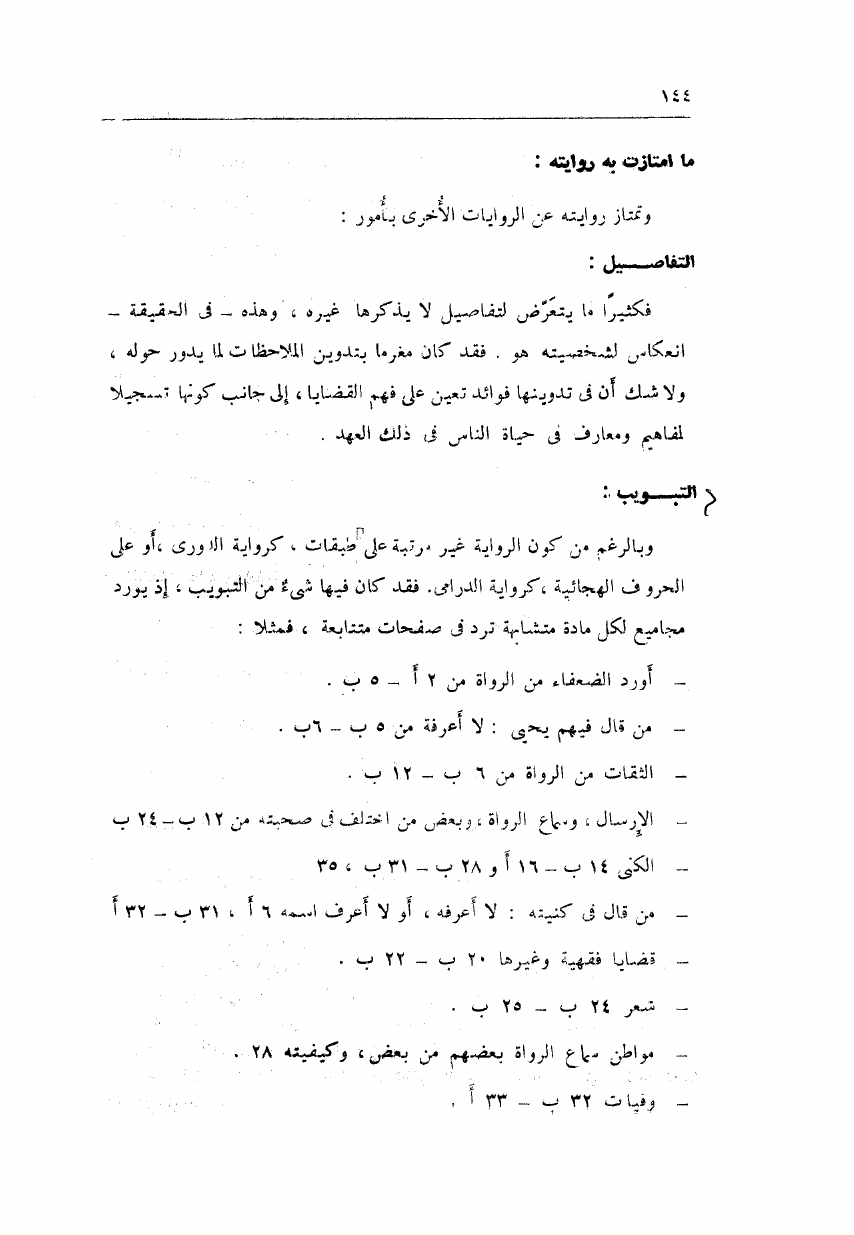 ١٤٤
ما امتازت به روايته :
وتمتاز روايته عن الروايات الأُخرى بأُمور :
التفاصـــيل :
فكثيرًا ما يتعَرّض لتفاصيل لا يذكرها غيره ، وهذه – فى الحقيقة –
انعكاس لشخصيته هو . فقد كان مغرما بتدوين الملاحظات لما يدور حوله ،
ولا شك أن فى تدوينها فوائد تعين على فهم القضايا ، إلى جانب كونها تسجيلا
لمفاهيم ومعارف فى حياة الناس فى ذلك العهد .
التبــويب :
وبالرغم من كون الرواية غير مرتبة على طبقات ، كرواية الدورى ،أو على
الحروف الهجائية ، كرواية الدرامى. فقد كان فيها شىءٌ من التبويب ، إذ يورد
مجاميع لكل مادة متشابهة ترد فى صفحات متتابعة ، فمثلا :
– أورد الضعفاء من الرواة من ٢ أ – ٥ ب .
– من قال فيهم يحيى : لا أعرفة من ٥ ب – ٦ب .
– الثقات من الرواة من ٦ ب – ١٢ ب .
– الإرسال ، وسماع الرواة ، وبعض من اختلف فى صحبته من ١٢ ب – ٢٤ ب
– الكنى ١٤ ب – ١٦ أ و ٢٨ ب – ٣١ ب ، ٣٥
– من قال فى كنيته : لا أعرفه ، أو لا أعرف اسمه ٦ أ ، ٣١ ب – ٣٢ أ
– قضايا فقهية وغيرها ٢٠ ب – ٢٢ ب .
– شعر ٢٤ ب – ٢٥ ب .
– مواطن سماع الرواة بعضهم من بعض، وكيفيته ٢٨ .
– وفيات ٣٢ ب – ٣٣ أ .